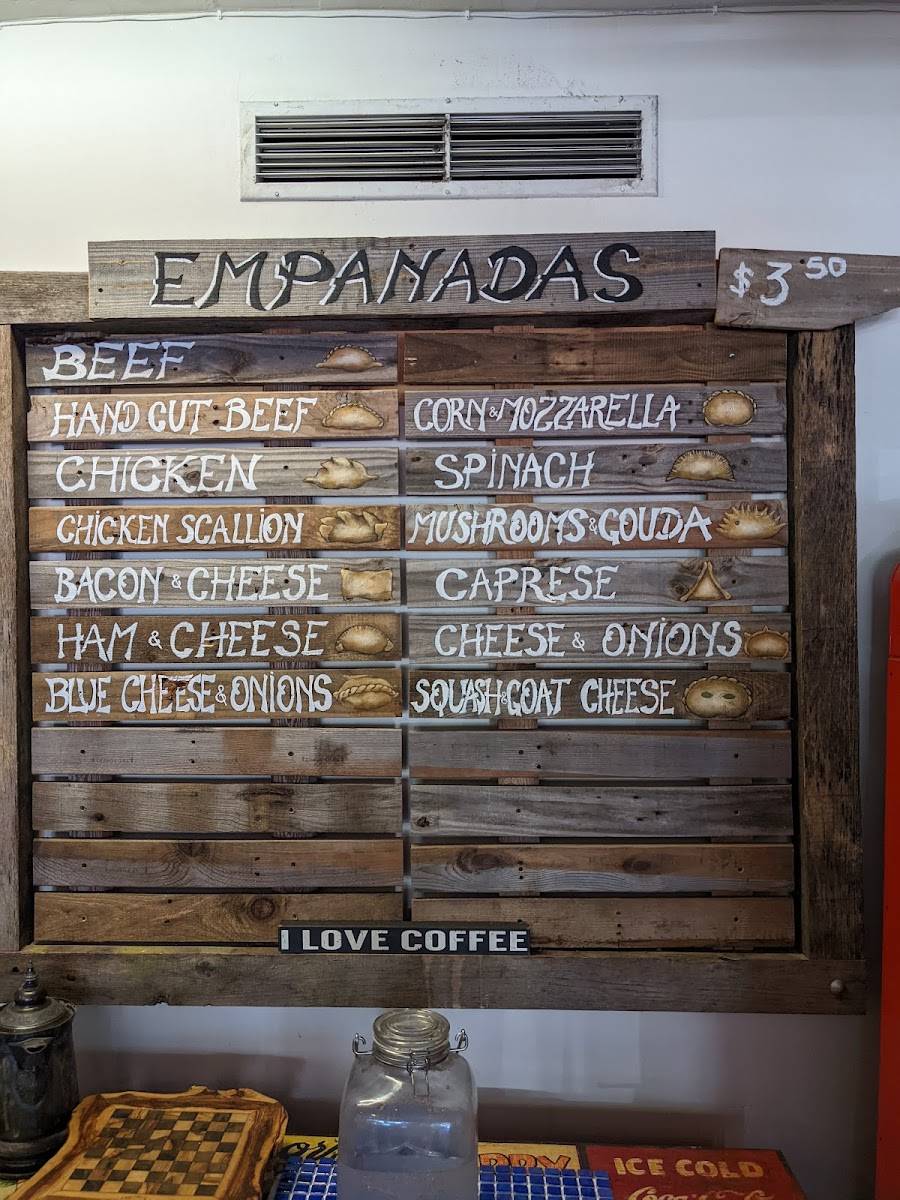 EMPANADAS
$3 50
BEEF
HAND CUT BEEF
CHICKEN
CHICKEN SCALLION
BACON & CHEESE
HAM & CHEESE
BLUE CHEESE & ONIONS
CORN & MOZZARELLA
SPINACH
MUSHROOMS & GOUDA
CAPRESE
CHEESE & ONIONS
SQUASH & GOAT CHEESE
I LOVE COFFEE
ICE COLD
Coca-Cola